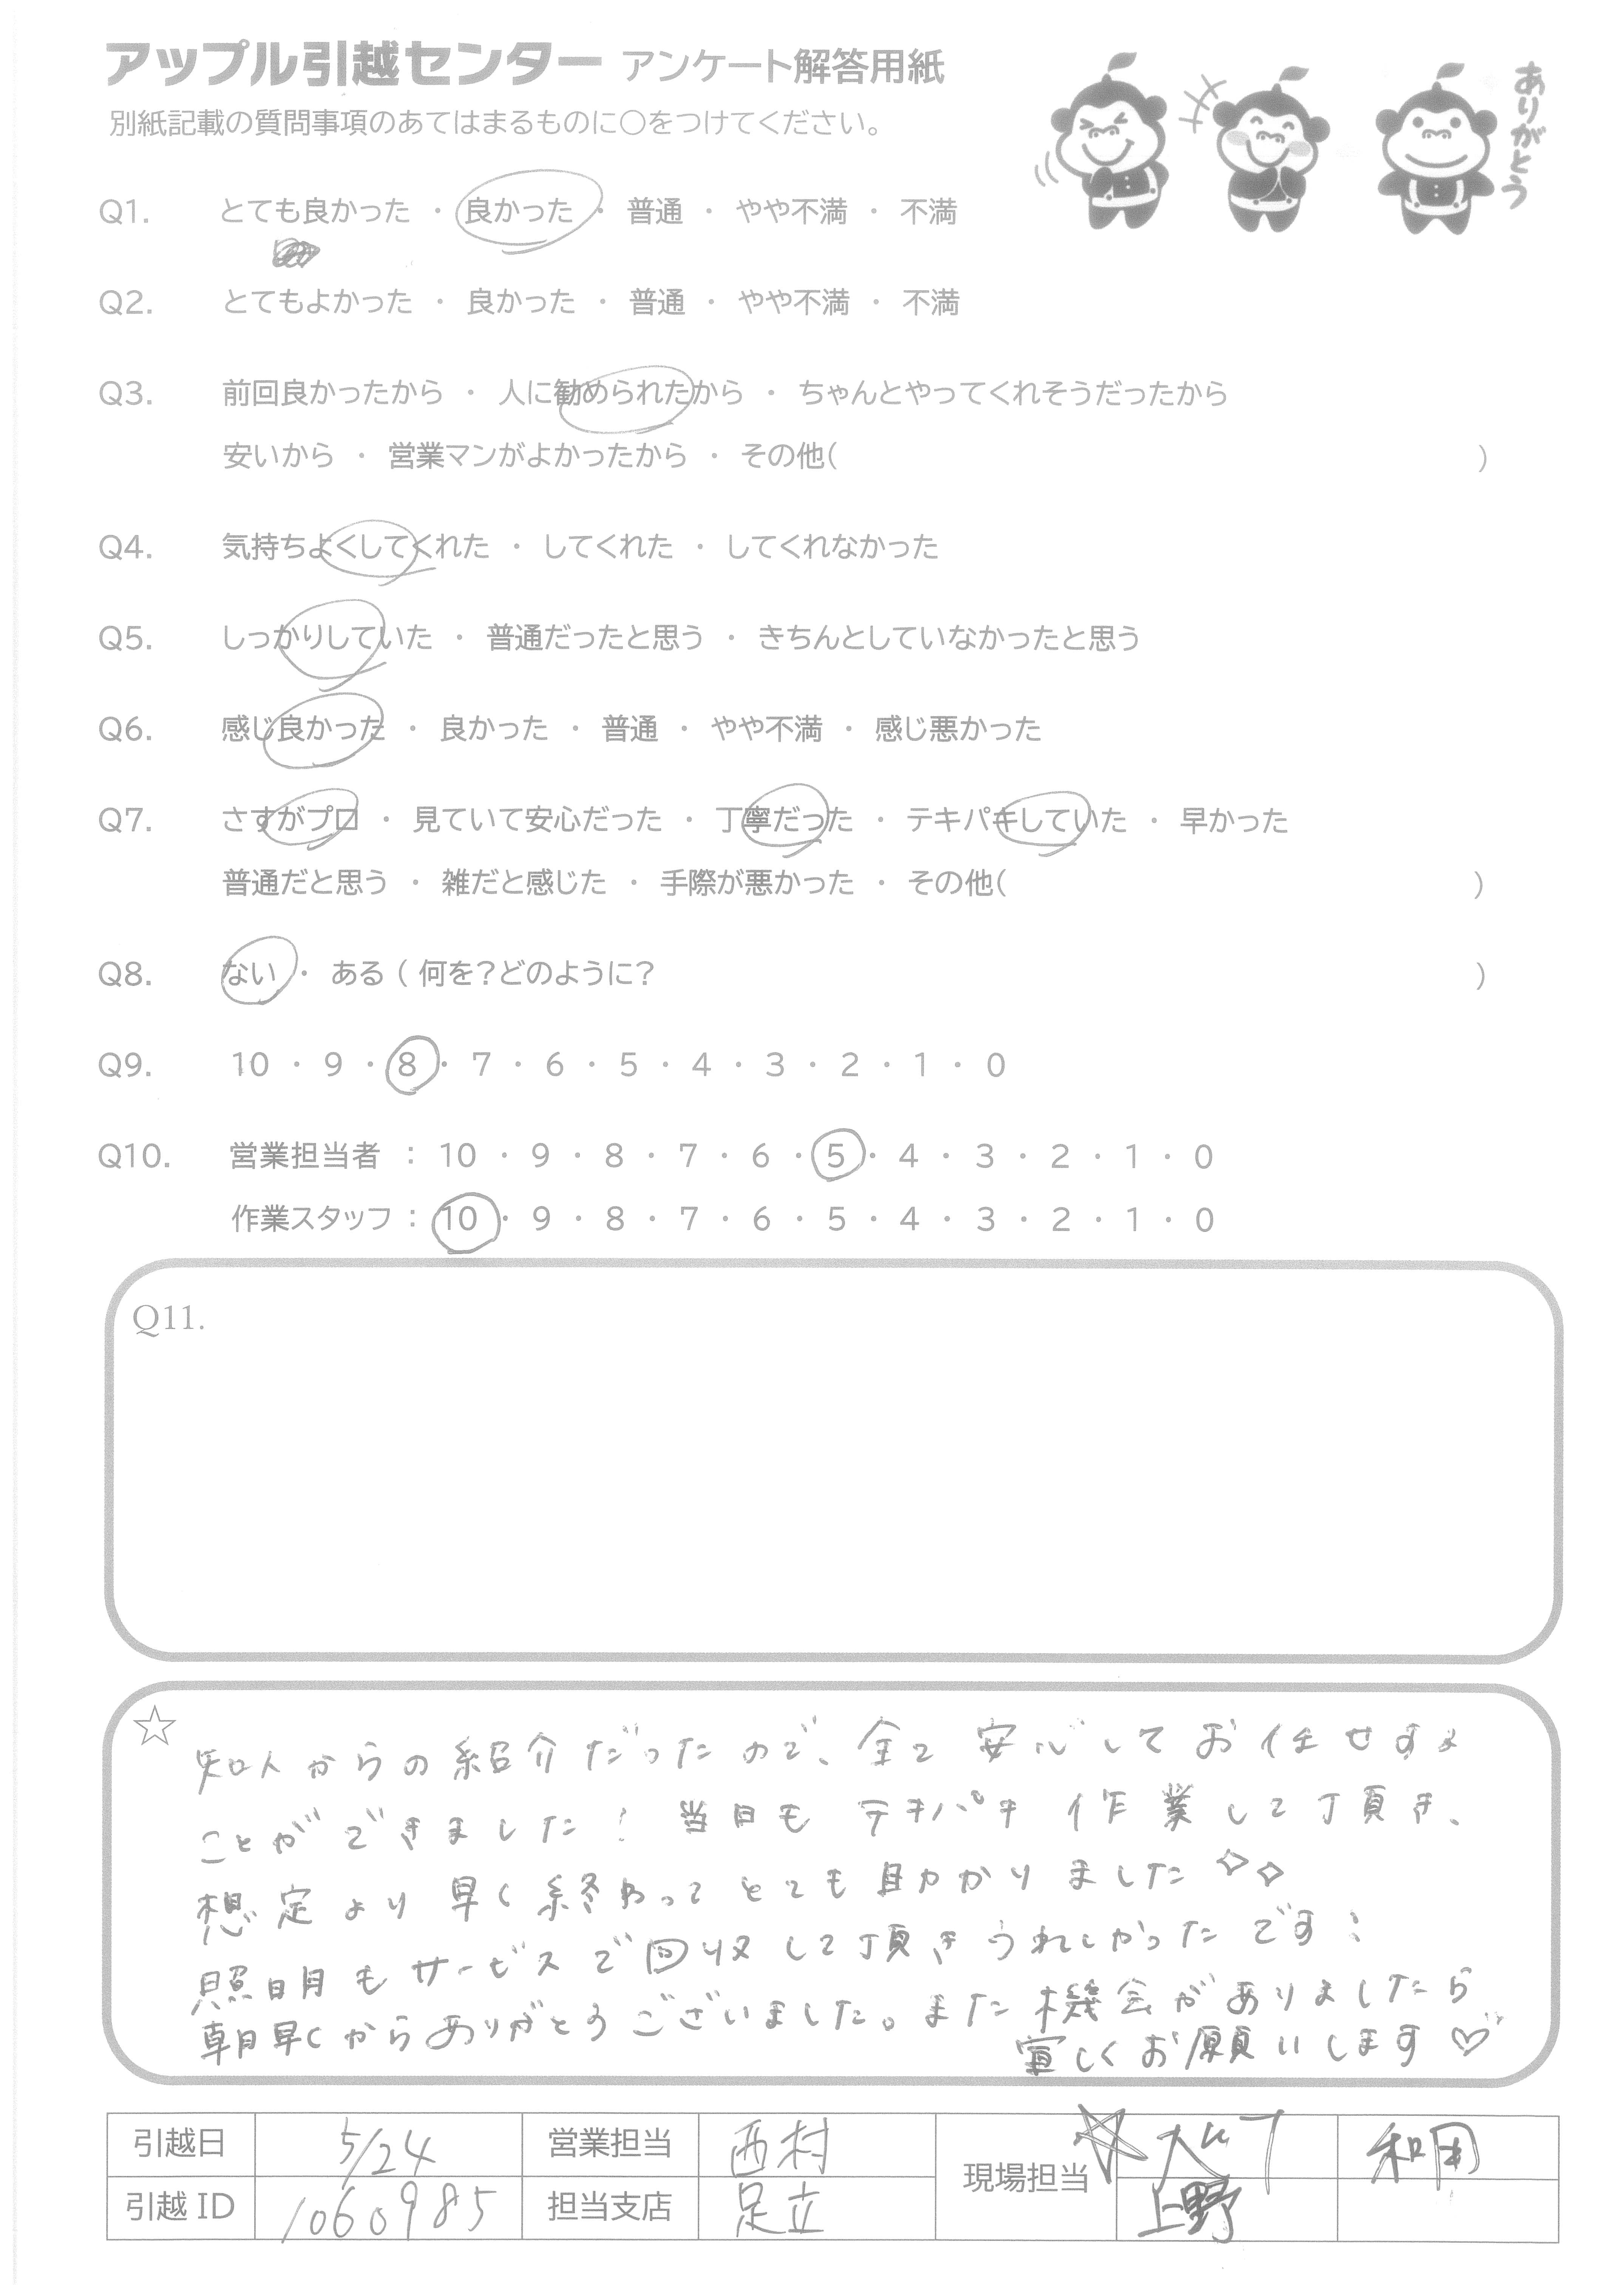 アップル引越センター アンケート解答用紙
別紙記載の質問事項のあてはまるものに○をつけてください。
ありがとう
Q1. とても良かった ・ 良かった ・ 普通 ・ やや不満 ・ 不満
Q2. とてもよかった ・ 良かった ・ 普通 ・ やや不満 ・ 不満
Q3. 前回良かったから ・ 人に勧められたから ・ ちゃんとやってくれそうだったから
安いから ・ 営業マンがよかったから ・ その他( )
Q4. 気持ちよくしてくれた ・ してくれた ・ してくれなかった
Q5. しっかりしていた ・ 普通だったと思う ・ きちんとしていなかったと思う
Q6. 感じ良かった ・ 良かった ・ 普通 ・ やや不満 ・ 感じ悪かった
Q7. さすがプロ ・ 見ていて安心だった ・ 丁寧だった ・ テキパキしていた ・ 早かった
普通だと思う ・ 雑だと感じた ・ 手際が悪かった ・ その他( )
Q8. ない ・ ある ( 何を?どのように? )
Q9. 10 ・ 9 ・ 8 ・ 7 ・ 6 ・ 5 ・ 4 ・ 3 ・ 2 ・ 1 ・ 0
Q10. 営業担当者 : 10 ・ 9 ・ 8 ・ 7 ・ 6 ・ 5 ・ 4 ・ 3 ・ 2 ・ 1 ・ 0
作業スタッフ : 10 ・ 9 ・ 8 ・ 7 ・ 6 ・ 5 ・ 4 ・ 3 ・ 2 ・ 1 ・ 0
Q11.
☆ 知人からの紹介だったので、全て安心してお任せする
ことができました! 当日もテキパキ作業して頂き、
想定より早く終わってとても助かりました✧✧
照明もサービスで回収して頂きうれしかったです!
朝早くからありがとうございました。また機会がありましたら
宜しくお願いします♡
引越日 5/24 営業担当 西村 現場担当 ☆ 和田
引越 ID 1060985 担当支店 足立 上野